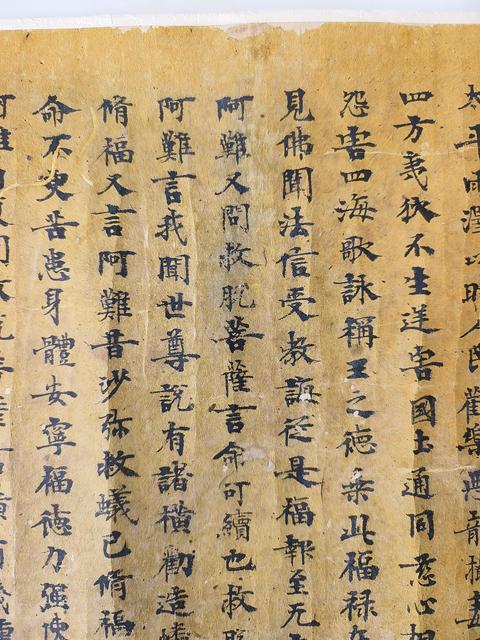 太平雨澤以時人民歡樂惡龍攝毒
四方夷狄不生逆害國土通同慈心
怨害四海歌詠稱王之德乘此福祿
見佛聞法信受教誨從是福報至无
阿難又問救脫菩薩言命可續也救脫
阿難言我聞世尊說有諸橫勸造幡
脩福又言阿難昔沙弥救蟻已脩福
命不更苦患身體安寧福德力強使